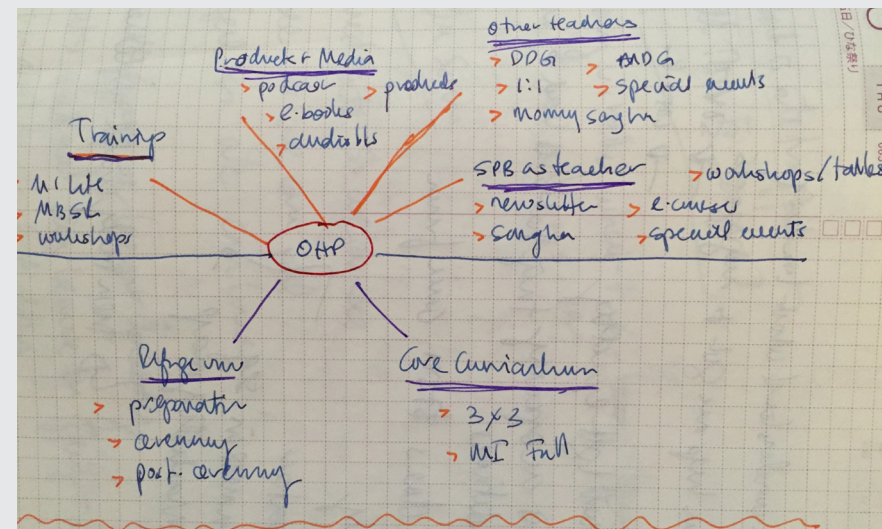 Other teachers
> DDG > MDG
> 1:1 > special events
> mommy sangha
Products & Media
> podcast > products
> e-books
> audibles
Training
MI Lite
> MBSR
> workshops
SPB as teacher > workshops/talks
> newsletter > e-courses
> sangha > special events
OHP
Refuge
> preparation
> ceremony
> post-ceremony
Core Curriculum
> 3x3
> MI Full